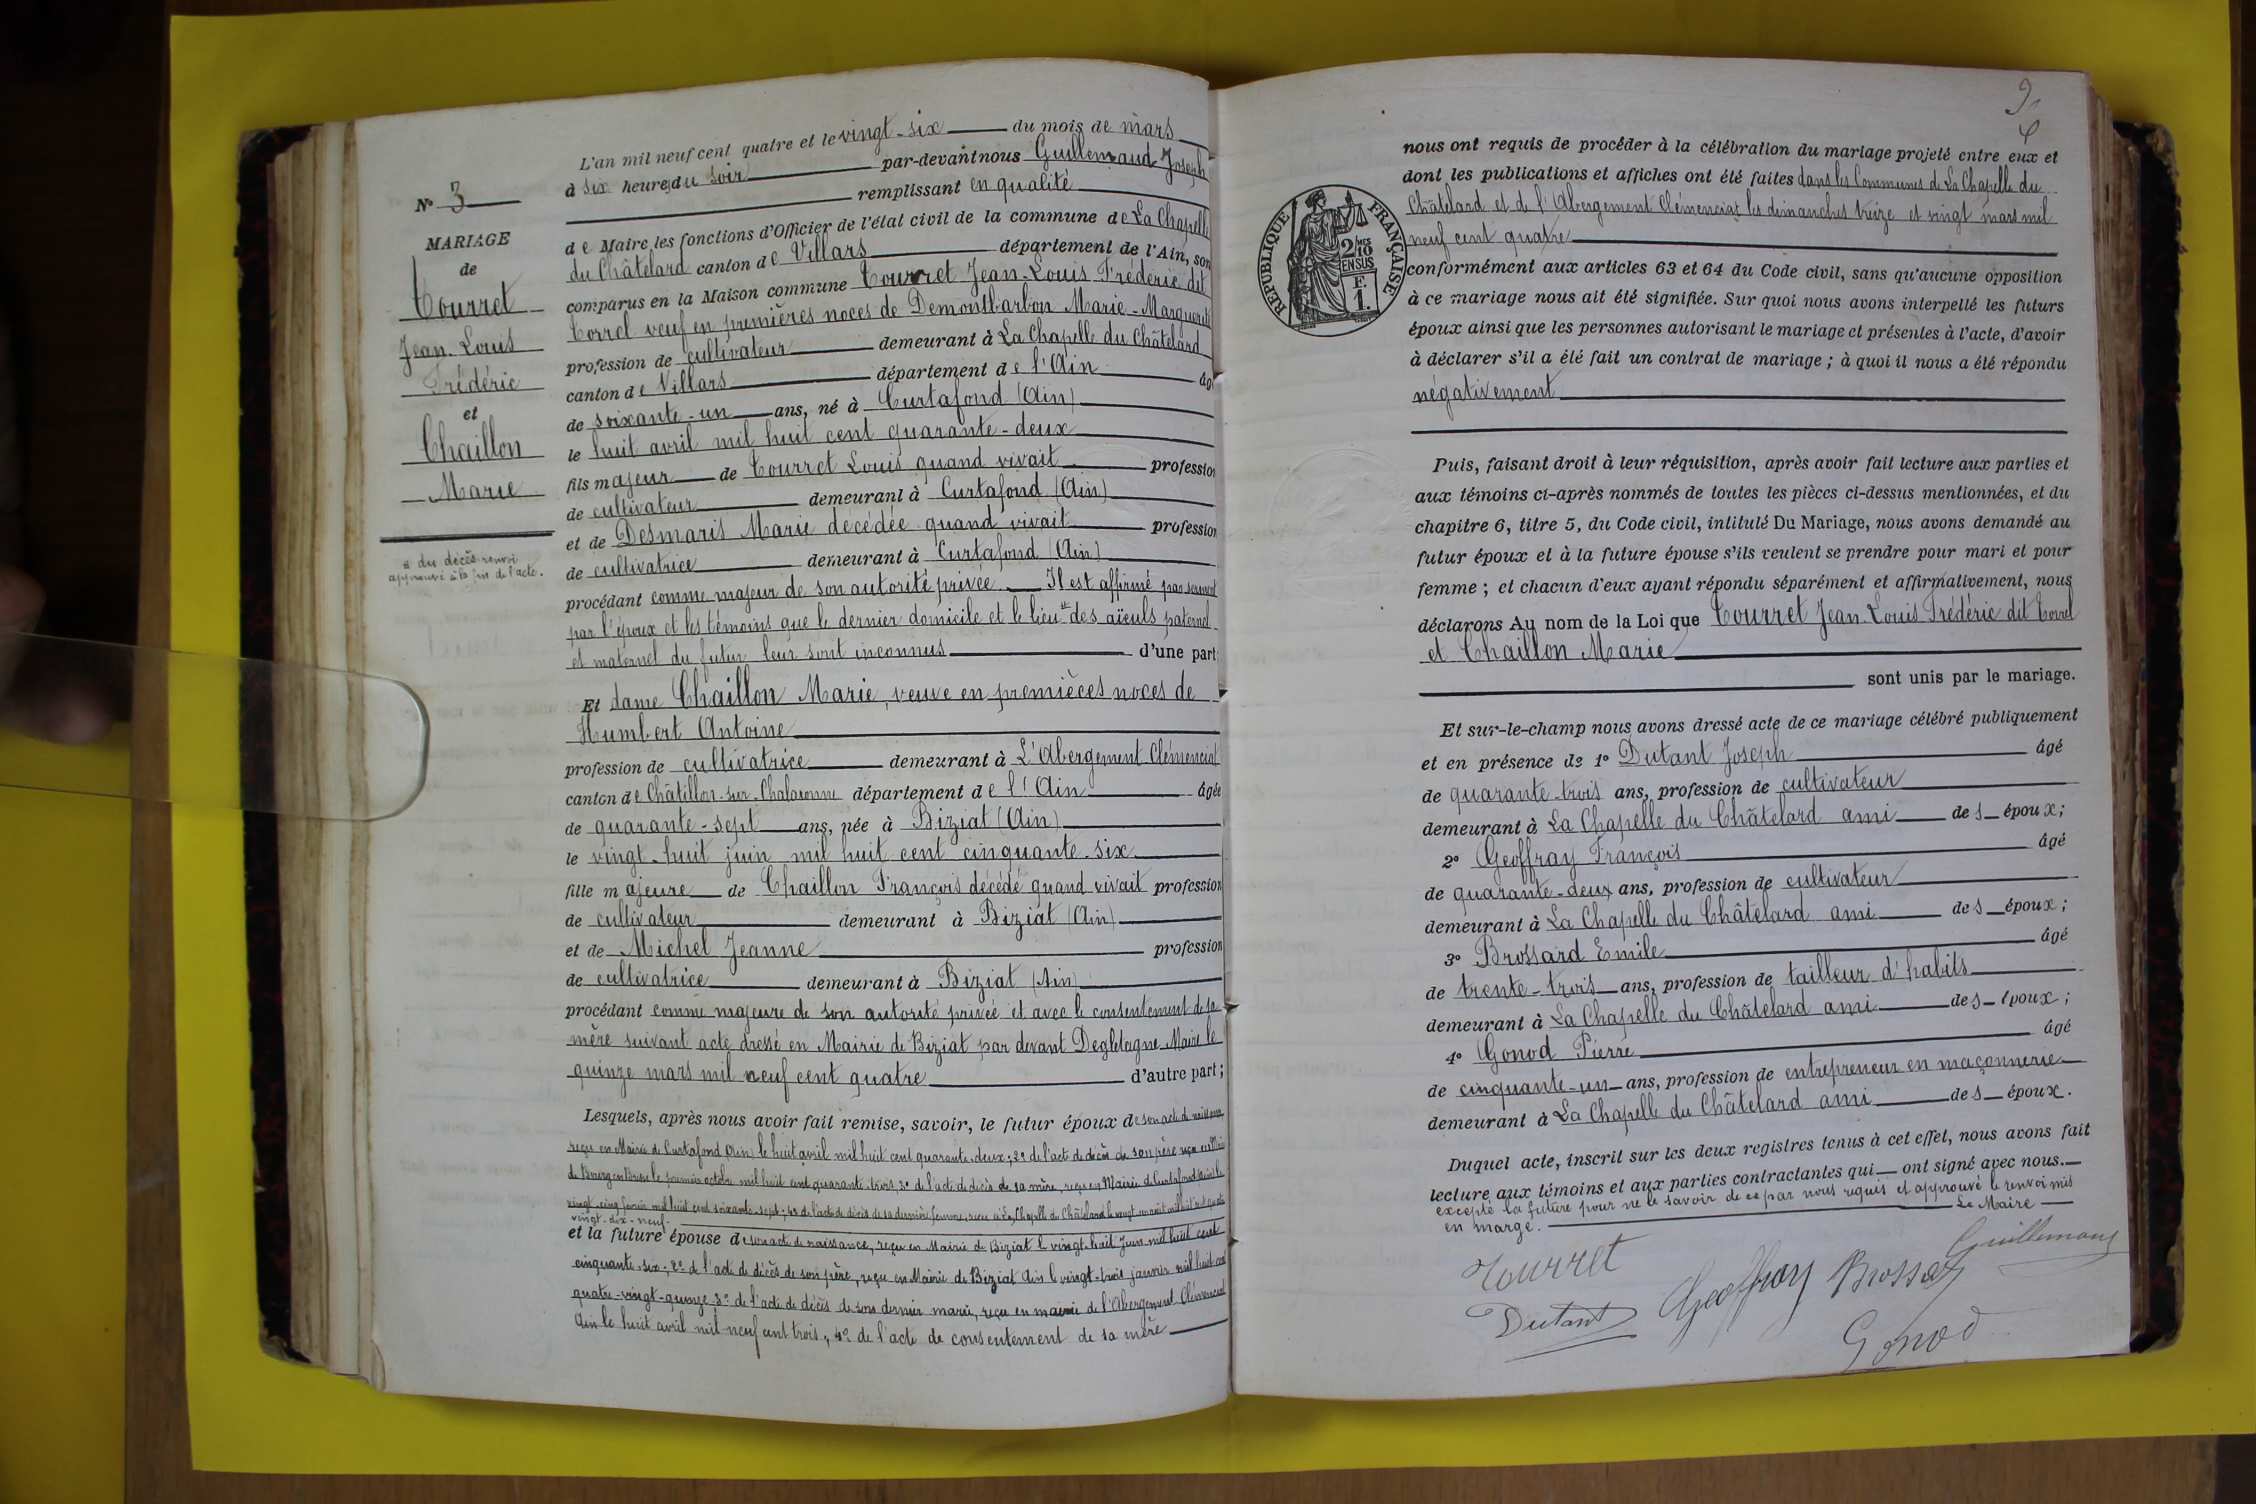 N° 3
MARIAGE
de
Tourret
Jean-Louis
Frédéric
et
Chaillon
Marie
du décès renvoi
approuvé à la fin de l'acte.
L'an mil neuf cent quatre et le vingt-six du mois de mars
à six heures du soir par-devant nous Guillemaud Joseph
remplissant en qualité
de Maire les fonctions d'Officier de l'état civil de la commune de La Chapelle
du Châtelard canton de Villars département de l'Ain, son
comparus en la Maison commune Tourret Jean-Louis Frédéric dit
Torrel veuf en premières noces de Demontbarbon Marie-Marguerite
profession de cultivateur demeurant à La Chapelle du Châtelard
canton de Villars département de l'Ain âg
de soixante-un ans, né à Curtafond (Ain)
le huit avril mil huit cent quarante-deux
fils majeur de Tourret Louis quand vivait profession
de cultivateur demeurant à Curtafond (Ain)
et de Desmaris Marie décédée quand vivait profession
de cultivatrice demeurant à Curtafond (Ain)
procédant comme majeur de son autorité privée Il est affirmé par serment
par l'époux et les témoins que le dernier domicile et le lieu des aïeuls paternel
et maternel du futur leur sont inconnus d'une part
Et dame Chaillon Marie, veuve en premières noces de
Humbert Antoine
profession de cultivatrice demeurant à L'Abergement Clémenciat
canton de Châtillon-sur-Chalaronne département de l'Ain âgée
de quarante-sept ans, née à Biziat (Ain)
le vingt-huit juin mil huit cent cinquante-six
fille majeure de Chaillon François décédé quand vivait profession
de cultivateur demeurant à Biziat (Ain)
et de Michel Jeanne profession
de cultivatrice demeurant à Biziat (Ain)
procédant comme majeure de son autorité privée et avec le consentement de sa
mère suivant acte dressé en Mairie de Biziat par devant Degletagne Maire le
quinze mars mil neuf cent quatre d'autre part;
Lesquels, après nous avoir fait remise, savoir, le futur époux de son acte de naissance
reçu en Mairie de Curtafond (Ain) le huit avril mil huit cent quarante-deux; 2° de l'acte de décès de son père reçu en Mairie
de Bourg en Bresse le premier octobre mil huit cent quarante-trois, 3° de l'acte de décès de sa mère, reçu en Mairie de Curtafond (Ain) le
vingt-cinq février mil huit cent soixante-sept; 4° de l'acte de décès de sa dernière femme, reçu à La Chapelle du Châtelard le vingt
vingt-dix-neuf.
et la future épouse de son acte de naissance, reçu en Mairie de Biziat le vingt-huit Juin mil huit cent
cinquante-six; 2° de l'acte de décès de son père, reçu en Mairie de Biziat Ain le vingt-trois janvier mil huit cent
quatre-vingt-quinze 3° de l'acte de décès de son dernier mari, reçu en mairie de l'Abergement Clémenciat
Ain le huit avril mil neuf cent trois, 4° de l'acte de consentement de sa mère
9
nous ont requis de procéder à la célébration du mariage projeté entre eux et
dont les publications et affiches ont été faites dans les Communes de La Chapelle du
Châtelard et de l'Abergement Clémenciat les dimanches treize et vingt mars mil
neuf cent quatre
RÉPUBLIQUE FRANÇAISE
2/10
EN SUS
F.
1.
conformément aux articles 63 et 64 du Code civil, sans qu'aucune opposition
à ce mariage nous ait été signifiée. Sur quoi nous avons interpellé les futurs
époux ainsi que les personnes autorisant le mariage et présentes à l'acte, d'avoir
à déclarer s'il a été fait un contrat de mariage; à quoi il nous a été répondu
négativement
Puis, faisant droit à leur réquisition, après avoir fait lecture aux parties et
aux témoins ci-après nommés de toutes les pièces ci-dessus mentionnées, et du
chapitre 6, titre 5, du Code civil, intitulé Du Mariage, nous avons demandé au
futur époux et à la future épouse s'ils veulent se prendre pour mari et pour
femme; et chacun d'eux ayant répondu séparément et affirmativement, nous
déclarons Au nom de la Loi que Tourret Jean-Louis Frédéric dit Torrel
et Chaillon Marie
sont unis par le mariage.
Et sur-le-champ nous avons dressé acte de ce mariage célébré publiquement
et en présence de 1° Dutant Joseph âgé
de quarante-trois ans, profession de cultivateur
demeurant à La Chapelle du Châtelard ami des époux;
2° Geoffray François âgé
de quarante-deux ans, profession de cultivateur
demeurant à La Chapelle du Châtelard ami des époux;
3° Brossard Emile âgé
de trente-trois ans, profession de tailleur d'habits
demeurant à La Chapelle du Châtelard ami des époux;
4° Gonod Pierre âgé
de cinquante-un ans, profession de entrepreneur en maçonnerie
demeurant à La Chapelle du Châtelard ami des époux.
Duquel acte, inscrit sur les deux registres tenus à cet effet, nous avons fait
lecture aux témoins et aux parties contractantes qui ont signé avec nous.
excepté la future pour ne le savoir de ce par nous requis et approuvé le renvoi mis
en marge. Le Maire
Guillemaud
Tourret
Geoffray Brossard
Dutant
Gonod